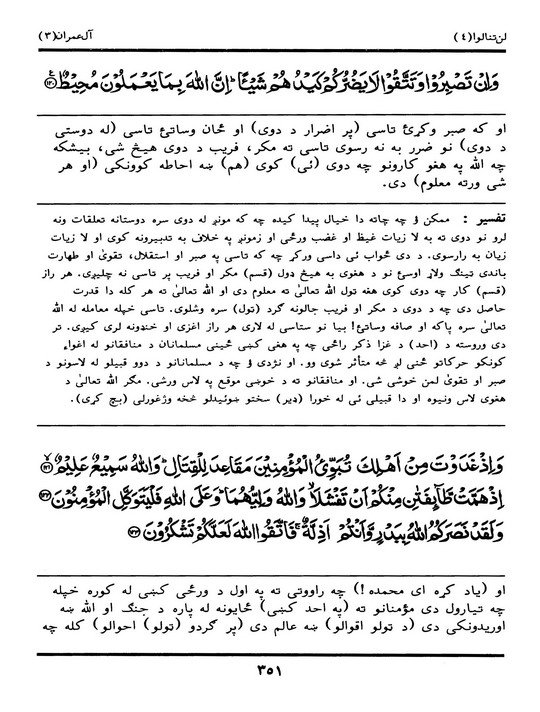 لن تنالوا (٤)
آل عمران (٣)
وَاِنْ تَصْبِرُوْا وَتَتَّقُوْا لَا يَضُرُّكُمْ كَيْدُهُمْ شَيْـًٔا ؕ اِنَّ اللّٰهَ بِمَا يَعْمَلُوْنَ مُحِيْطٌ ﴿١٢٠﴾
او که صبر وکړئ تاسی (پر اضرار د دوی) او ځان وساتئ تاسی (له دوستی
د دوی) نو ضرر به نه رسوی تاسی ته مکر، فریب د دوی هیڅ شی، بیشکه
چه الله په هغو کارونو چه دوی (ئی) کوی (هم) ښه احاطه کوونکی (او هر
شی ورته معلوم) دی.
تفسیر : ممکن ؤ چه چاته دا خیال پیدا کیده چه که مونږ له دوی سره دوستانه تعلقات ونه
لرو نو دوی ته به لا زیات غیظ او غضب ورځی او زمونږ په خلاف به تدبیرونه کوی او لا زیات
زیان به رارسوی. د دی ځواب ئی داسی ورکړ چه که تاسی په صبر او استقلال، تقویٰ او طهارت
باندی ټینګ ولاړ اوسئ نو د هغوی به هیڅ دول (قسم) مکر او فریب پر تاسی نه چلیږی. هر راز
(قسم) کار چه دوی کوی هغه ټول الله تعالیٰ ته معلوم دی او الله تعالیٰ ته هر کله دا قدرت
حاصل دی چه د دوی د مکر او فریب جالونه ګرد (ټول) سره وشلوی. تاسی خپله معامله له الله
تعالیٰ سره پاکه او صافه وساتئ! بیا نو ستاسی له لاری هر راز اغزی او خنډونه لری کیږی. تر
دی وروسته د (احد) د غزا ذکر راځی چه په هغی کښی ځینی مسلمانان د منافقانو له اغواء
کونکو حرکاتو ځنی لږ څه متأثر شوی وو. او نژدی ؤ چه د مسلمانانو د دوو قبیلو له لاسونو د
صبر او تقویٰ لمن خوشی شی. او منافقانو ته د خوښی موقع په لاس ورشی. مکر الله تعالیٰ د
هغوی لاس ونیوه او دا قبیلی ئی له خورا (ډیر) سختو ښوئیدلو څخه وژغورلی (بچ کړی).
وَاِذْ غَدَوْتَ مِنْ اَهْلِكَ تُبَوِّئُ الْمُؤْمِنِيْنَ مَقَاعِدَ لِلْقِتَالِ ؕ وَاللّٰهُ سَمِيْعٌ عَلِيْمٌ ﴿١٢١﴾
اِذْ هَمَّتْ طَّآىِٕفَتٰنِ مِنْكُمْ اَنْ تَفْشَلَا ۙ وَاللّٰهُ وَلِيُّهُمَا ؕ وَعَلَى اللّٰهِ فَلْيَتَوَكَّلِ الْمُؤْمِنُوْنَ ﴿١٢٢﴾
وَلَقَدْ نَصَرَكُمُ اللّٰهُ بِبَدْرٍ وَّاَنْتُمْ اَذِلَّةٌ ۚ فَاتَّقُوا اللّٰهَ لَعَلَّكُمْ تَشْكُرُوْنَ ﴿١٢٣﴾
او (یاد کړه ای محمده!) چه راووتی ته په اول د ورځی کښی له کوره خپله
چه تیارول دی مؤمنانو ته (په احد کښی) ځایونه له پاره د جنګ او الله ښه
اوریدونکی دی (د ټولو اقوالو) ښه عالم دی (پر ګردو (ټولو) احوالو) کله چه
٣٥١